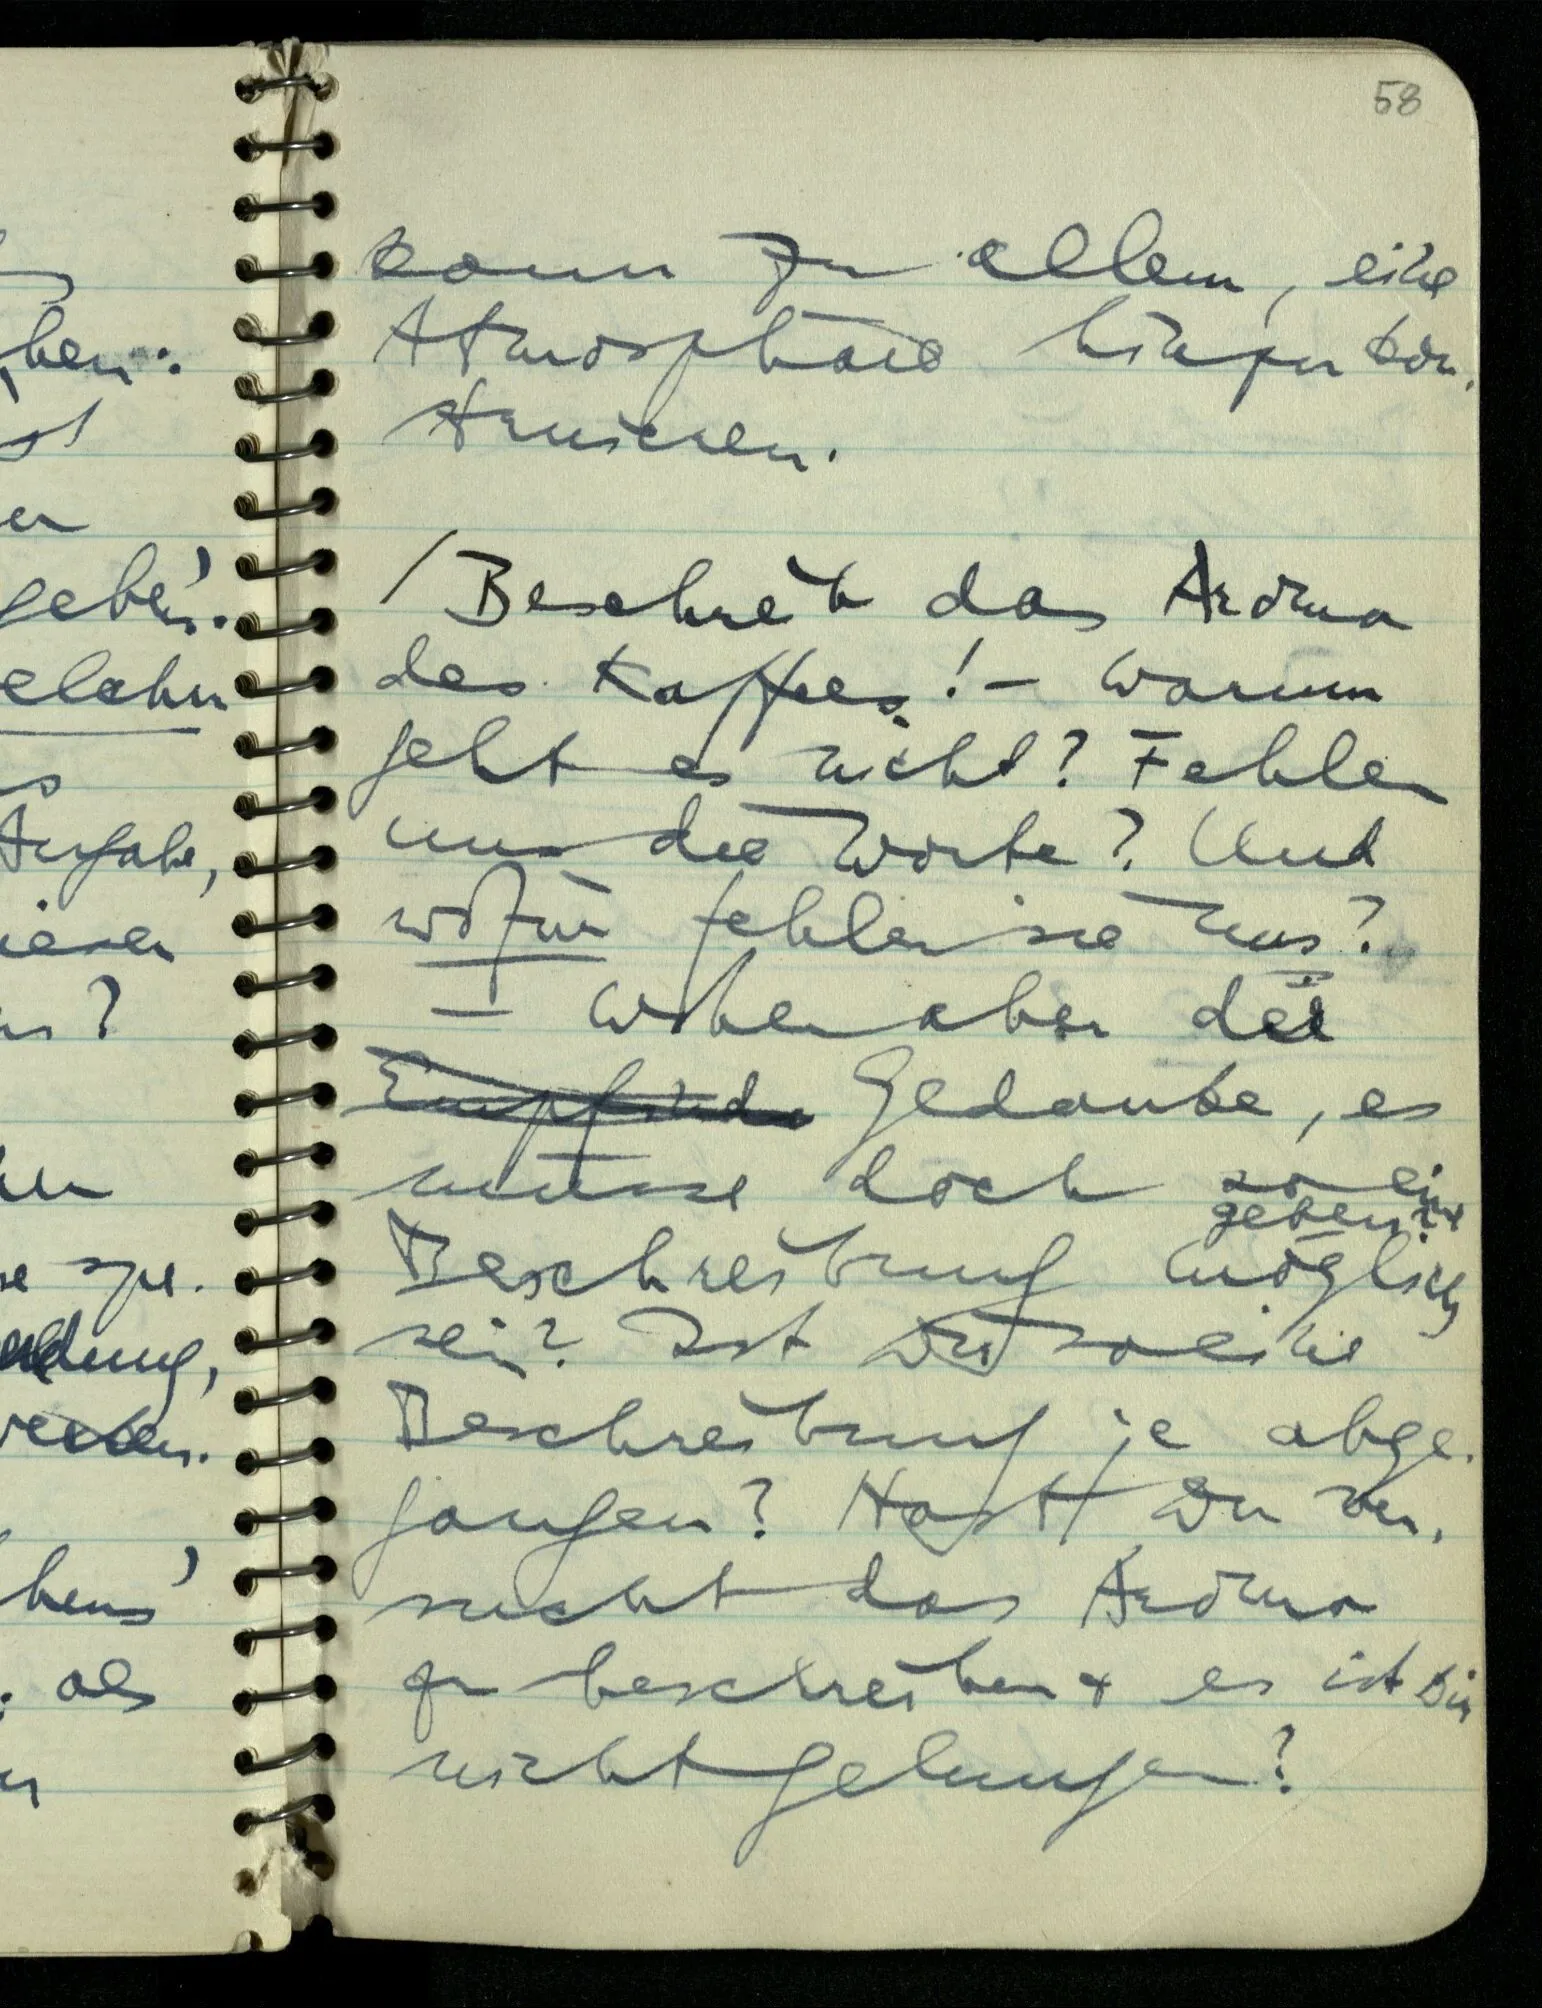 58
kann zu allem, eine
Atmosphäre hinzu kon-
struieren.
/Beschreib das Aroma
des Kaffees! – Warum
geht es nicht? Fehlen
uns die Worte? Und
wofür fehlen sie uns?
– Woher aber der
Empfinde Gedanke, es
müsse doch so eine
geben?
Beschreibung möglich
sein? Ist Dir so eine
Beschreibung je abge-
gangen? Hast Du ver-
sucht das Aroma
zu beschreiben & es ist Dir
nicht gelungen?
hen.
st
er
geben'.
welchen
s
Aufgabe,
diesen
s?
en
spe-
dung,
werden.
bens'
als